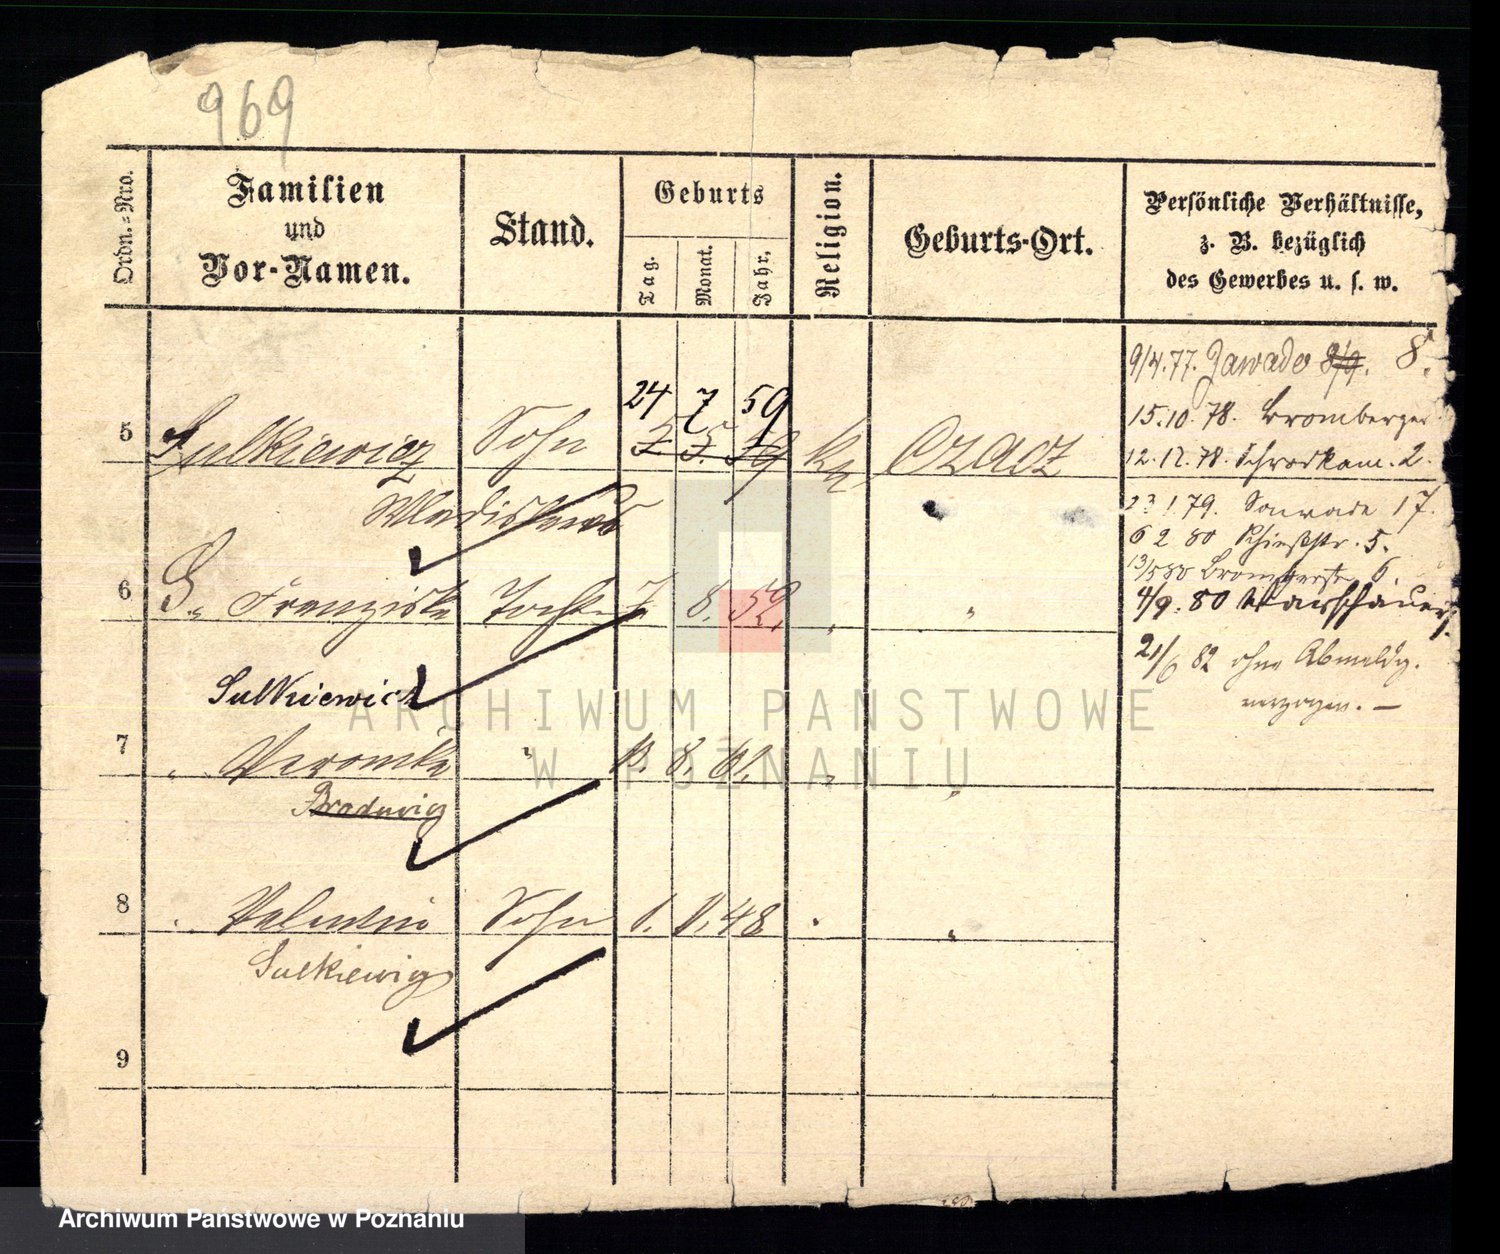 969
Ordn.-Nro.
Familien
und
Vor-Namen.
Stand.
Geburts
Tag.
Monat.
Jahr.
Religion.
Geburts-Ort.
Persönliche Verhältnisse,
z. B. bezüglich
des Gewerbes u. s. w.
9/4.77. Zawade 8/9. 8.
24 7 59
15.10.78. Bromberger
5 Sulkiewicz Sohn 5. 59 ka Czacz
12.12.78. 2.
Wladislaus
23 1.79. 17.
6 2 80 Schießstr. 5.
6.
6 S. Franziska Tochter 7 8. 52. "
4/9. 80 Warschauer
21/6 82 ohne Abmeldg.
verzogen. —
Sulkiewicz
7 " Veronika " 8. "
8 Valentin Sohn 1. 48 "
Sulkiewicz
9
ARCHIWUM PAŃSTWOWE
W POZNANIU
Archiwum Państwowe w Poznaniu